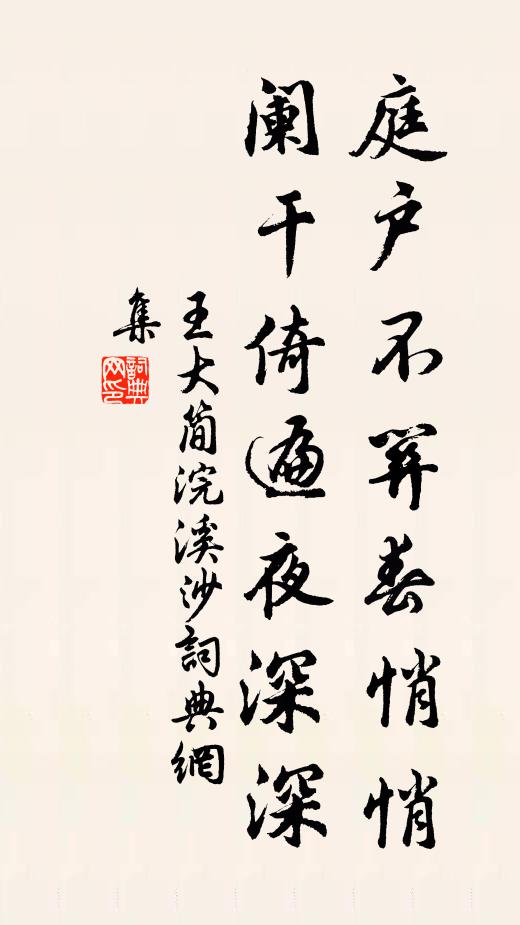 庭户不关春悄悄
阑干倚遍夜深深
王大简浣溪沙詞典網
集
詞典网印